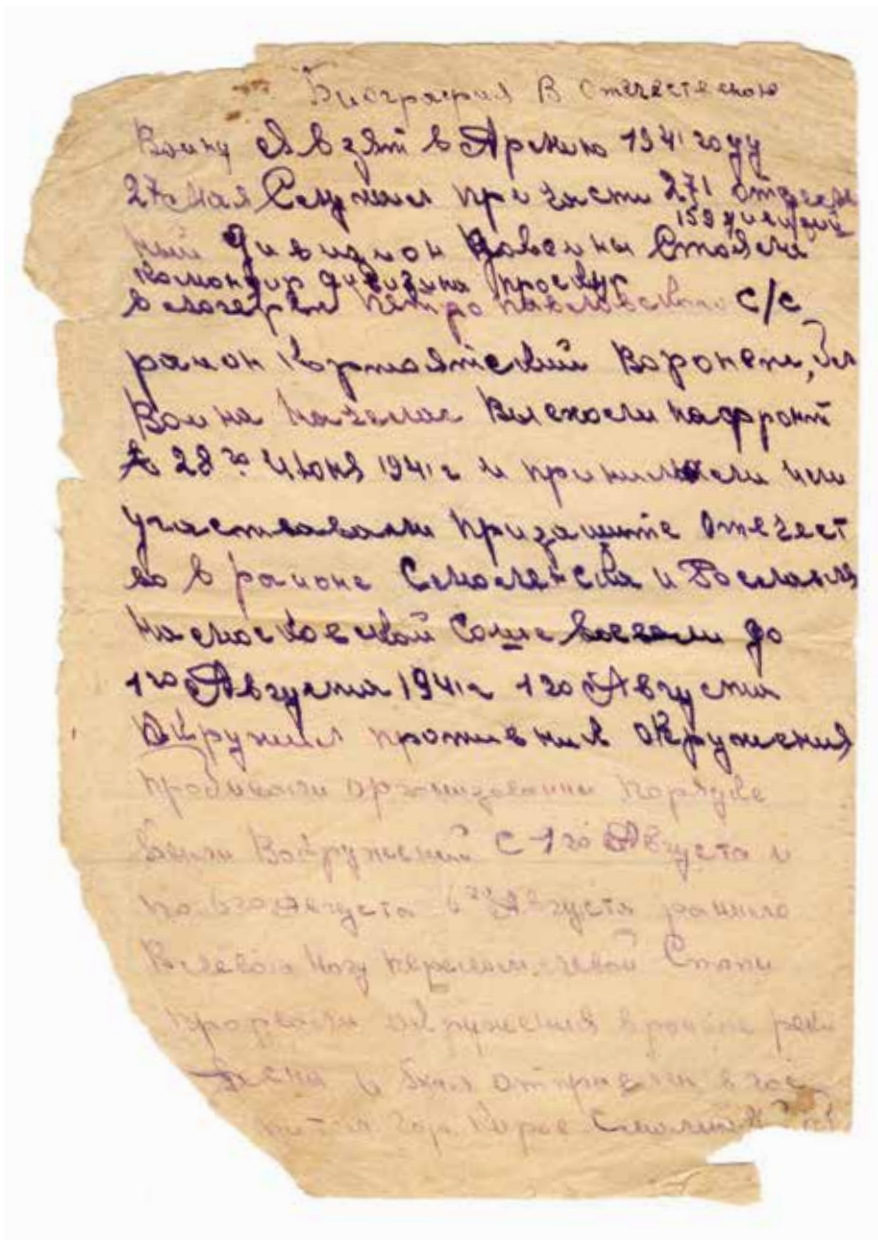 Биография В Отечествено
Воину Я взят в Армию 1941 году
27 мая Служил при части 271 отдель
159 дивизий
ный Дивизион До Воины Стояли
Командир дивизина
в лагерях Петропавловского с/с
район Воронеж,
Воина началас Выехали на фронт
28го Июня 1941 г и принимали
участвовали при защите Отечест
во в районе Смоленска и Рославля
На московской Соше воевали до
1го Августа 1941 г 1го Августа
Окружил противник окружения
пробивали организованни порядке
Вокружений С 1го Августа и
по 6го Августа 6го Августа ранило
В левою ногу перелом левой Стопи
прорвали окружения в районе реки
Десна и был отправлен в гос
гор. Киров